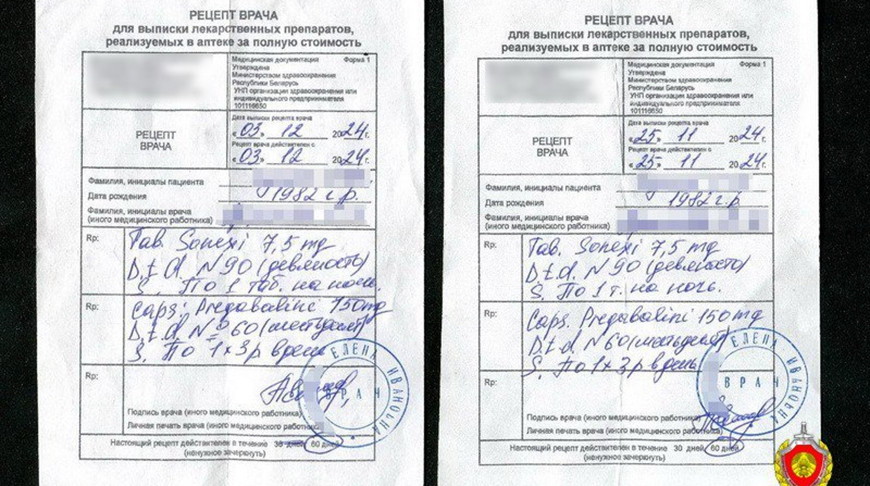 РЕЦЕПТ ВРАЧА
для выписки лекарственных препаратов,
реализуемых в аптеке за полную стоимость
Медицинская документация Форма 1
Утверждена
Министерством здравоохранения
Республики Беларусь
УНП организации здравоохранения или
индивидуального предпринимателя
101116650
РЕЦЕПТ
ВРАЧА
Дата выписки рецепта врача
«03» 12 2024г.
Рецепт врача действителен с
«03» 12 2024г.
Фамилия, инициалы пациента
Дата рождения 1982 г.р.
Фамилия, инициалы врача
(иного медицинского работника)
Rp: Tab. Sonexi 7,5 mg
D.t.d. N 90 (девяносто)
S. По 1 таб. на ночь.
Rp: Caps. Pregabalini 150 mg
D.t.d. N 60 (шестьдесят)
S. По 1×3 р в день
Rp:
Подпись врача (иного медицинского работника)
Личная печать врача (иного медицинского работника)
ЕЛЕНА ИВАНОВНА
ВРАЧ
Настоящий рецепт действителен в течение 30 дней 60 дней
(ненужное зачеркнуть)
РЕЦЕПТ ВРАЧА
для выписки лекарственных препаратов,
реализуемых в аптеке за полную стоимость
Медицинская документация Форма 1
Утверждена
Министерством здравоохранения
Республики Беларусь
УНП организации здравоохранения или
индивидуального предпринимателя
101116650
РЕЦЕПТ
ВРАЧА
Дата выписки рецепта врача
«25» 11 2024г.
Рецепт врача действителен с
«25» 11 2024г.
Фамилия, инициалы пациента
Дата рождения 1982 г.р.
Фамилия, инициалы врача
(иного медицинского работника)
Rp: Tab. Sonexi 7,5 mg
D.t.d. N 90 (девяносто)
S. По 1 т. на ночь.
Rp: Caps. Pregabalini 150 mg
D.t.d. N 60 (шестьдесят)
S. По 1×3 р в день
Rp:
Подпись врача (иного медицинского работника)
Личная печать врача (иного медицинского работника)
ЕЛЕНА ИВАНОВНА
ВРАЧ
Настоящий рецепт действителен в течение 30 дней 60 дней
(ненужное зачеркнуть)